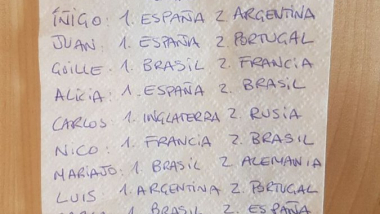 IÑIGO: 1. ESPAÑA 2. ARGENTINA
JUAN: 1. ESPAÑA 2. PORTUGAL
GUILLE: 1. BRASIL 2. FRANCIA
ALICIA: 1. ESPAÑA 2. BRASIL
CARLOS 1. INGLATERRA 2. RUSIA
NICO: 1. FRANCIA 2. BRASIL
MARIAJO: 1. BRASIL 2. ALEMANIA
LUIS 1. ARGENTINA 2. PORTUGAL
1. BRASIL 2. ESPAÑA